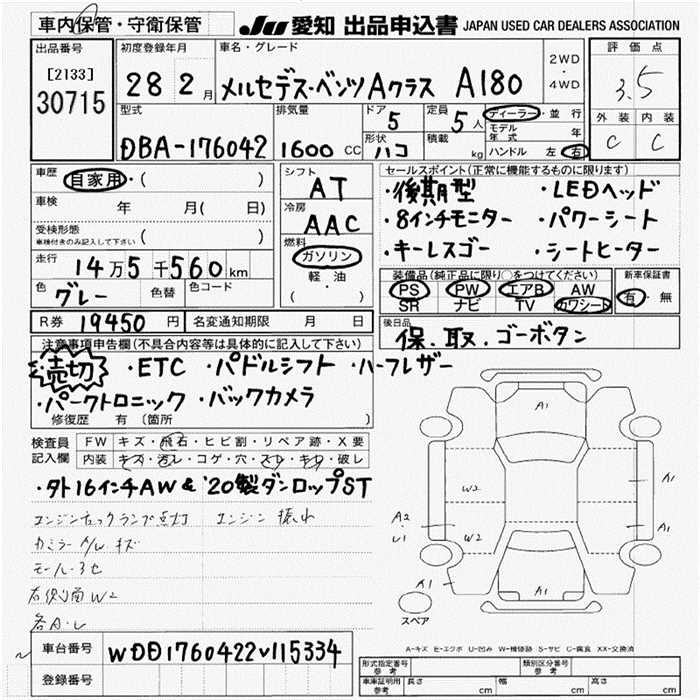 車内保管・守衛保管
JU 愛知 出品申込書 JAPAN USED CAR DEALERS ASSOCIATION
出品番号
[2133]
30715
初度登録年月
28 2月
車名・グレード
メルセデス・ベンツAクラス A180
2WD
・
4WD
評価点
3.5
外装 内装
C C
型式
DBA-176042
排気量
1600 CC
ドア
5
形状
ハコ
定員
5人
積載
kg
ディーラー・並行
モデル年式 年
ハンドル 左 右
車歴
自家用・( )
車検 年 月( 日)
受検形態
車検付きのみ記入して下さい ( )
走行
14万5千560km
色
グレー
色替
色コード
シフト
AT
冷房
AAC
燃料
ガソリン
軽・油
( )
セールスポイント(正常に機能するものに限ります)
・後期型 ・LEDヘッド
・8インチモニター ・パワーシート
・キーレスゴー ・シートヒーター
装備品(純正品に限り○をつけてください)
PS PW エアB AW
SR ナビ TV カワシート
新車保証書
有・無
R券 19450円
名変通知期限 月 日
後日品
保.取.ゴーボタン
注意事項申告欄(不具合内容等は具体的に記入して下さい)
売切 ・ETC ・パドルシフト ・ハーフレザー
・パークトロニック ・バックカメラ
修復歴 有 〔箇所 〕
検査員
記入欄
FW キズ・飛石・ヒビ割・リペア跡・X要
内装 キズ・汚レ・コゲ・穴・スレ・キレ・破レ
・タト16インチAW&'20製ダンロップST
エンジンチェックランプ点灯 エンジン振れ
カミラー A/W キズ
モール・3セ
右側面W2
各A・L
車台番号
WDD1760422V115334
登録番号
A1
W2
A2
U1
W2
A1
A1
A1
A1
スペア
A-キズ E-エクボ U-凹み W-補修跡 S-サビ C-腐食 XX-交換済
形式指定番号
参考
類別区分番号
参考
車庫証明用
参考
長さ cm
幅 cm
高さ cm